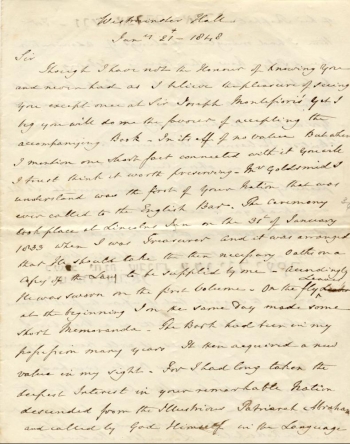 Westminster Hall
Jany 21 - 1848
Sir
Though I have not the Honour of knowing You
and never had as I believe the pleasure of seeing
you except once at Sir Joseph Montefiori's Yet I
beg you will do me the favour of accepting the
accompanying Book - In itself of no value But when
I mention one short fact connected with it You will
I trust think it worth preserving - Mr Goldsmid I
understand was the first of Your Nation that was
ever called to the English Bar - The Ceremony
took place at Lincolns Inn on the 31st of January
1833 when I was Treasurer and it was arranged
that He should take the then necessary Oaths on a
Copy of the Law to be supplied by me - Accordingly
He was sworn on the first Volume - On the fly Leaf
at the beginning I on the same Day made some
short Memoranda - The Book had been in my
possession many years It then acquired a new
value in my sight - For I had long taken the
deepest Interest in your remarkable Nation
descended from the Illustrious Patriarch Abraham
and called by God Himself in the Language